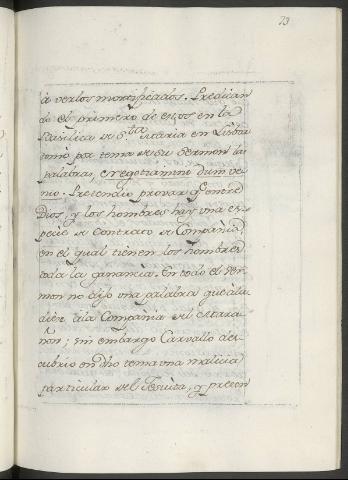 73
à verlos mortificados. Predican
do el primero de estos en la
Basilica de S.ta Maria en Lisboa
tomò por tema de su Sermon las
palabras, et negotiamini dum ve
nio. Pretendio provar q̃ entre
Dios, y los hombres hay una es
pecie de Contrato de Compañia
en el qual tienen los hombres
toda la ganancia. En todo el Ser
mon no dijo una palabra que alu
diese a la Compañia del Mara
ñon; sin embargo Carvallo des
cubrio en dho tema una malicia
particular del Jesuita, y preten